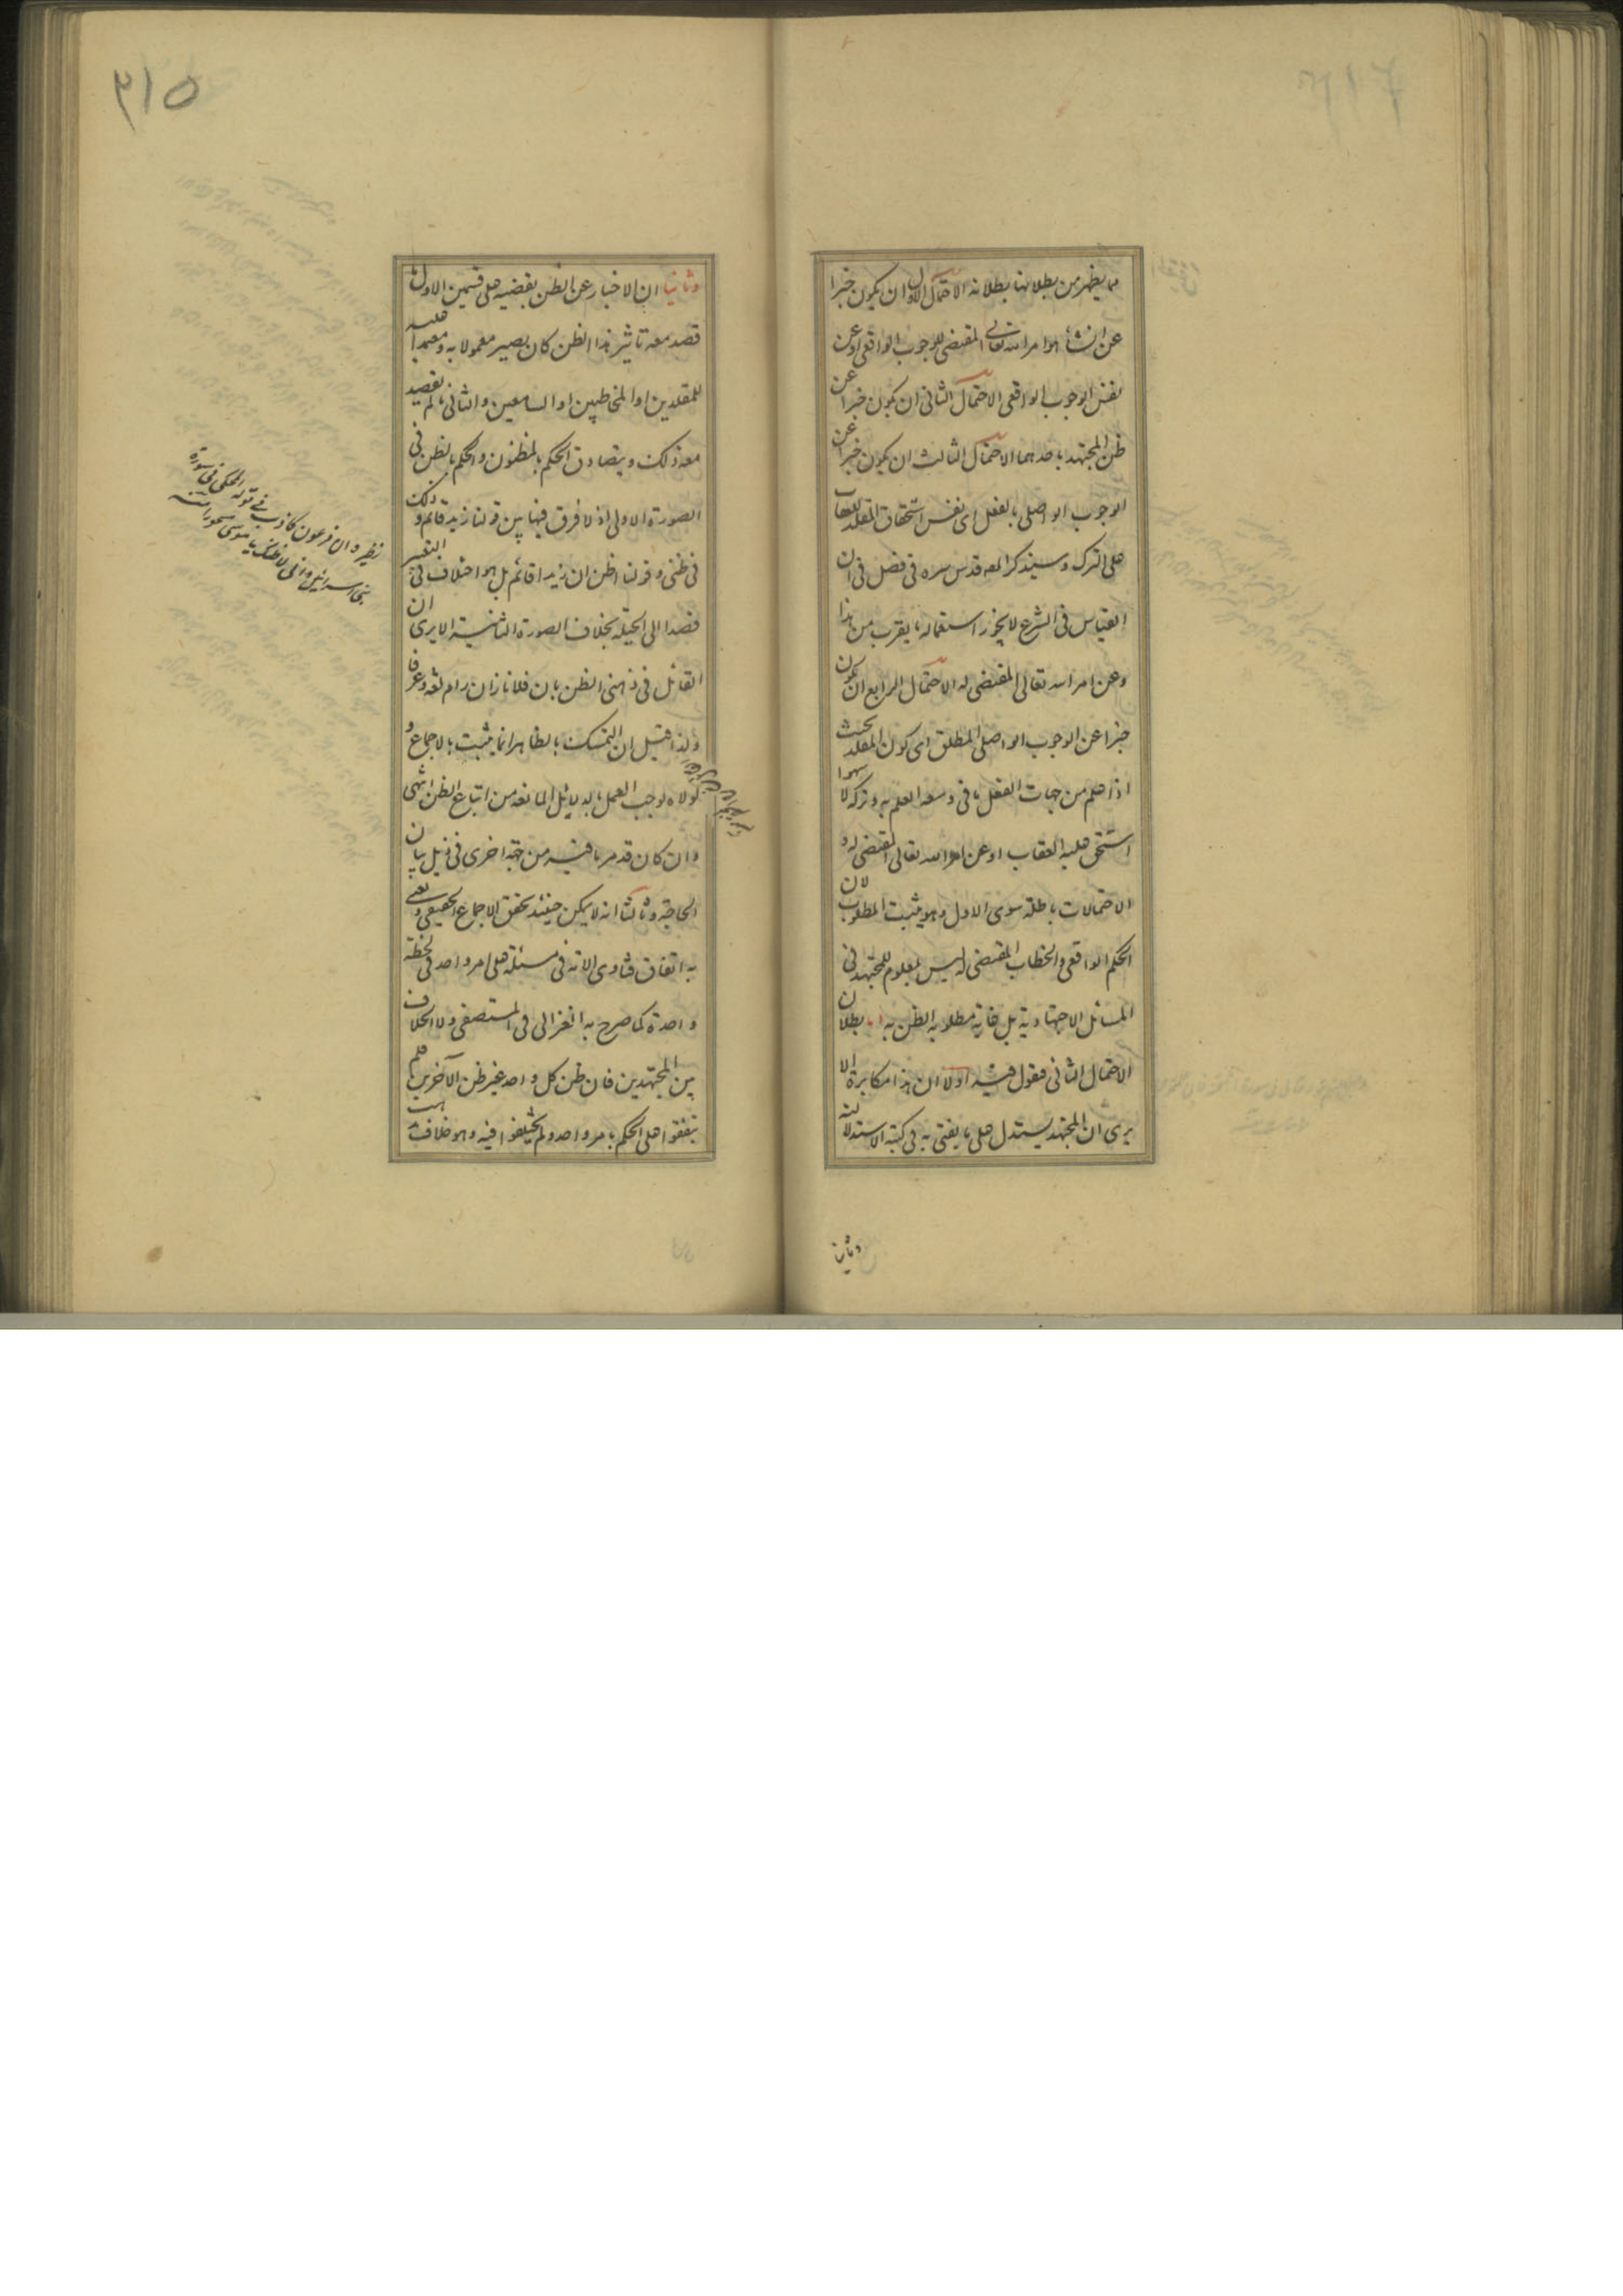 مما يظهر من بطلانها بطلانه الاحتمال الاول ان يكون خبرا
عن انشاء هو امر الله تعالى المقتضى للوجوب الواقعى او عن
نفس الوجوب الواقعى الاحتمال الثانى ان يكون خبرا عن
ظن المجتهد باحدهما الاحتمال الثالث ان يكون خبرا عن
الوجوب الواصلى بالفعل اى نفس استحقاق المقلد للعقاب
على الترك وسيذكر المصه قدس سره فى فصل فى ان
القياس فى الشرع لا يجوز استعماله ما يقرب من هذا
وعن امر الله تعالى المقتضى له الاحتمال الرابع ان يكون
خبرا عن الوجوب الواصلى المطلق اى كون المقلد بحيث
اذا علم من جهات الفعل ما فى وسعه العلم به وتركه لا سهوا
استحق عليه العقاب او عن امر الله تعالى المقتضى له و
الاحتمالات باطلة سوى الاول وهو يثبت المطلوب لان
الحكم الواقعى والخطاب المقتضى له ليس بمعلوم للمجتهد فى
المسائل الاجتهادية بل غاية مطلوبه الظن به اما بطلان
الاحتمال الثانى فنقول فيه اولا ان هذا مكابرة الا
يرى ان المجتهد يستدل على ما يفتى به فى كتبه الاستدلالية
وثانيا
٣١٥
وثانيا ان الاخبار عن الظن بقضيه على قسمين الاول ما
قصد معه تاثير هذا الظن كان يصير معمولا به ومعتمدا عليه
للمقلدين او المخاطبين او السامعين والثانى ما لم يقصد
معه ذلك ويتصادق الحكم بالمظنون والحكم بالظن فى
الصورة الاولى اذ لا فرق فيها بين قولنا زيد قائم وذلك
فى ظنى وقولنا اظن ان زيدا قائم بل هو اختلاف فى التعبير
قصدا الى الحيلة بخلاف الصورة الثانية الا يرى ان
القائل فى ذهنى الظن بان فلانا زان رام لغة وعرفا
ولذا قيل ان التمسك بالظاهر انما يثبت بالاجماع و
لولاه لوجب العمل بالدلائل المانعة من اتباع الظن انتهى
وان كان قد مر ما فيه من جهة اخرى فى ذيل بيان
الحاجة وثالثا انه لا يمكن حينئذ تحقق الاجماع الحقيقى ونعنى
به اتفاق فتاوى الامة فى مسئلة على امر واحد فى لحظة
واحدة كما صرح به الغزالى فى المستصفى ولا الخلاف
بين المجتهدين فان ظن كل واحد غير ظن الآخرين فلم
يتفقوا على الحكم بامر واحد ولم يختلفوا فيه وهو خلاف
نظيره ان فرعون كاذب فى قوله المحكى فى سورة
بنى اسرائيل وانى لاظنك يا موسى مسحورا منه